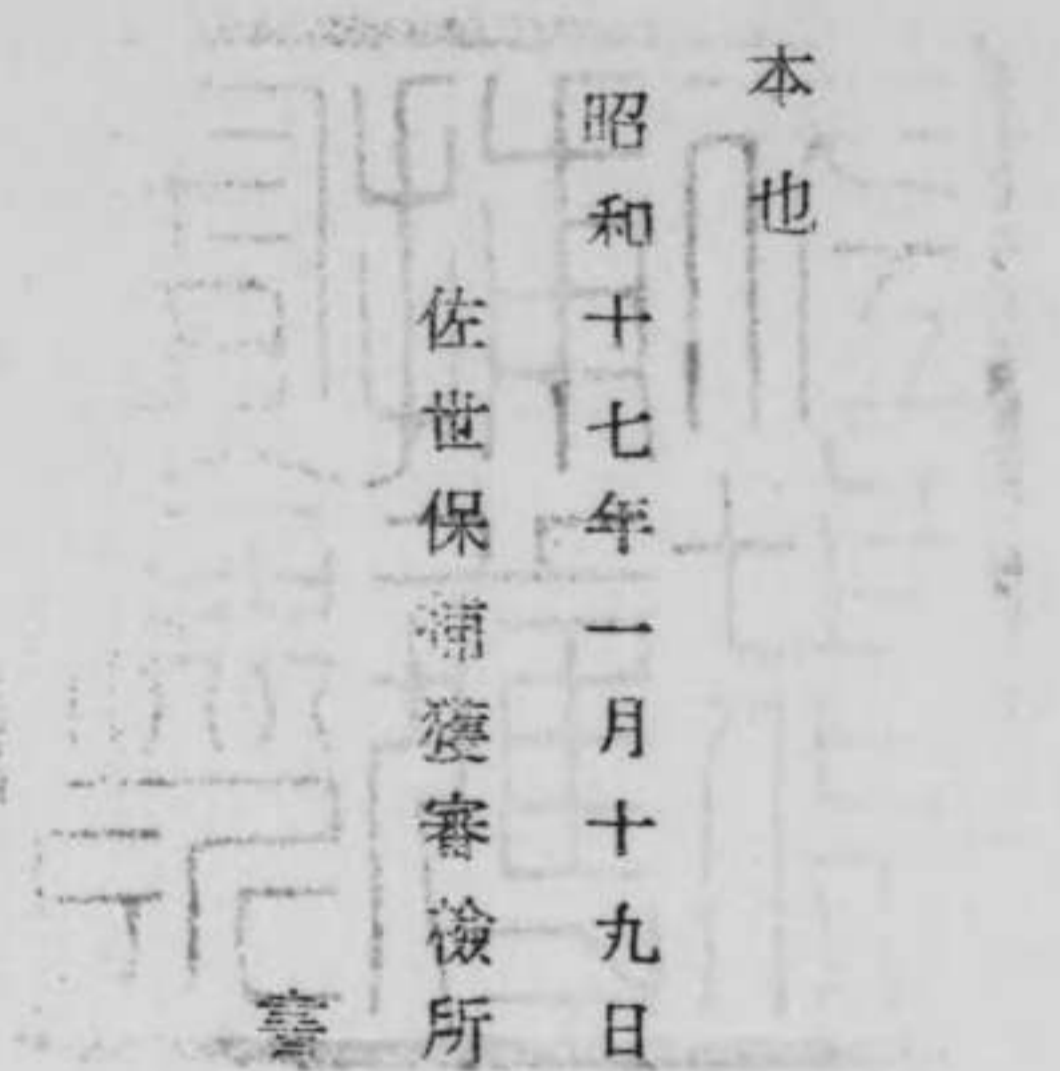 本也
昭和十七年一月十九日
佐世保捕獲審檢所